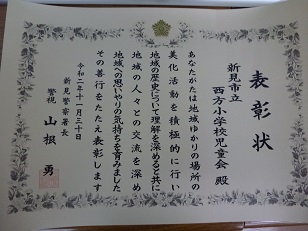 表彰状
新見市立
西方小学校児童会 殿
あなたがたは地域ゆかりの場所の
美化活動を積極的に行い
地域の歴史について理解を深めると共に
地域の人々との交流を深め
地域への思いやりの気持ちを育みました
その善行をたたえ表彰します
令和二年十一月三十日
新見警察署長
警視 山根 勇